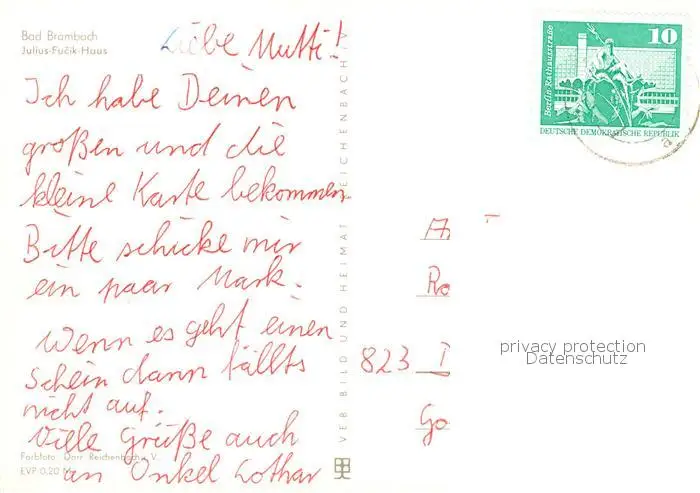 Bad Brambach
Julius-Fučik-Haus
Liebe Mutti!
Ich habe Deinen
großen und die
kleine Karte bekommen.
Bitte schicke mir
ein paar Mark.
Wenn es geht einen
Schein dann fällts
nicht auf.
Viele Grüße auch
an Onkel Lothar
Farbfoto: Darr Reichenbach i. V.
EVP 0,20 M
VEB BILD UND HEIMAT REICHENBACH
10
Berlin-Rathausstraße
DEUTSCHE DEMOKRATISCHE REPUBLIK
823
privacy protection
Datenschutz